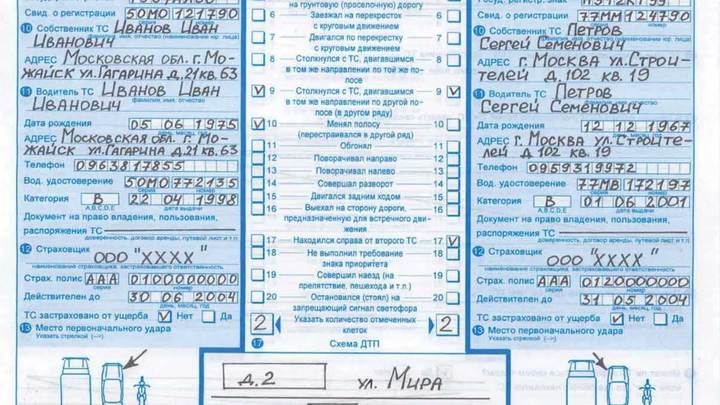 Свид. о регистрации 50МО 121790
10 Собственник ТС Иванов Иван
Иванович
фамилия, имя, отчество (наименование юр. лица)
АДРЕС Московская обл. г. Мо-
жайск ул. Гагарина д. 21 кв. 63
11 Водитель ТС Иванов Иван
Иванович
фамилия, имя, отчество
Дата рождения 05 06 1975
день, месяц, год
АДРЕС Московская обл. г. Мо-
жайск ул. Гагарина д. 21 кв. 63
Телефон 0963817855
Вод. удостоверение 50МО 772135
серия номер
Категория В 22 04 1998
A,B,C,D,E дата выдачи
Документ на право владения, пользования,
распоряжения ТС
доверенность, договор аренды, путевой лист и т.п.
12 Страховщик
ООО "ХХХХ"
наименование страховщика, застраховавшего ответственность
Страх. полис ААА 0100000000
серия номер
Действителен до 30 06 2004
день, месяц, год
ТС застраховано от ущерба Нет Да
13 Место первоначального удара
Указать стрелкой (→)
на грунтовую (проселочную) дорогу
6 Заезжал на перекресток 6
с круговым движением
7 Двигался по перекрестку 7
с круговым движением
8 Столкнулся с ТС, двигавшимся 8
в том же направлении по той же по-
лосе
9 Столкнулся с ТС, двигавшимся 9
в том же направлении по другой по-
лосе (в другом ряду)
10 Менял полосу 10
(перестраивался в другой ряд)
11 Обгонял 11
12 Поворачивал направо 12
13 Поворачивал налево 13
14 Совершал разворот 14
15 Двигался задним ходом 15
16 Выехал на сторону дороги, 16
предназначенную для встречного дви-
жения
17 Находился справа от второго ТС 17
18 Не выполнил требование 18
знака приоритета
19 Совершил наезд (на 19
препятствие, пешехода и т.п.)
20 Остановился (стоял) на 20
запрещающий сигнал светофора
2 Указать количество отмеченных 2
клеток
17 Схема ДТП
д. 2 ул. Мира
Свид. о регистрации 77ММ 124790
10 Собственник ТС Петров
Сергей Семенович
АДРЕС г. Москва ул. Строи-
телей д. 102 кв. 19
11 Водитель ТС Петров
Сергей Семенович
фамилия, имя, отчество
Дата рождения 12 12 1967
день, месяц, год
АДРЕС г. Москва ул. Строите-
лей д. 102 кв. 19
Телефон 0959319972
Вод. удостоверение 77МВ 172197
серия номер
Категория В 01 06 2001
A,B,C,D,E дата выдачи
Документ на право владения, пользования,
распоряжения ТС
доверенность, договор аренды, путевой лист и т.п.
12 Страховщик
ООО "ХХХХ"
наименование страховщика, застраховавшего ответственность
Страх. полис ААА 0120000000
серия номер
Действителен до 31 05 2004
день, месяц, год
ТС застраховано от ущерба Нет Да
13 Место первоначального удара
Указать стрелкой (→)